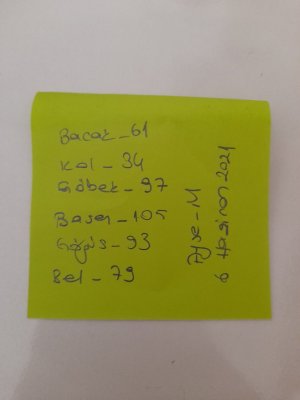 Bacak_61
Kol_34
Göbek_97
Basen_105
Göğüs_93
Bel_79
Ayşe_M
6 Haziran 2021